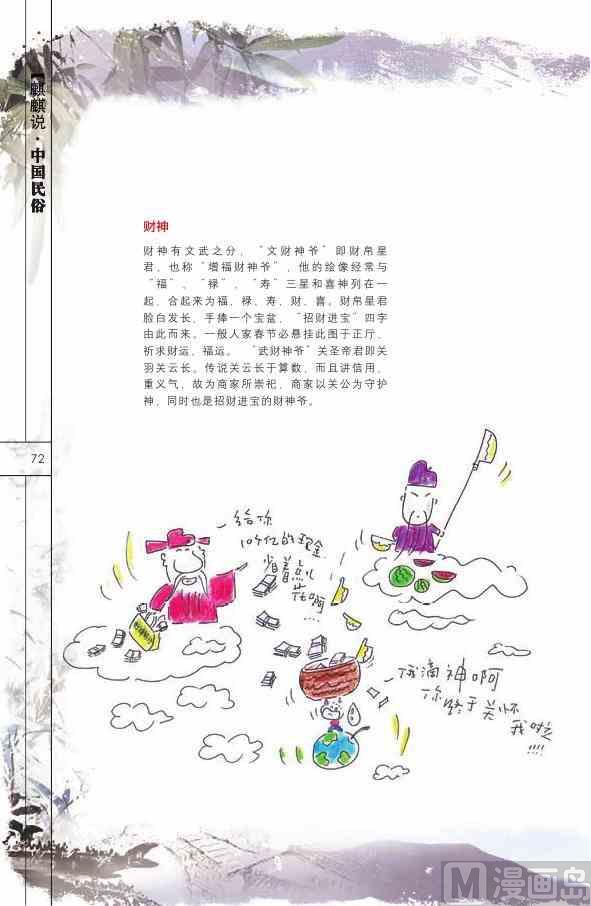 【麒麒说·中国民俗
财神
财神有文武之分，“文财神爷”即财帛星
君，也称“增福财神爷”，他的绘像经常与
“福”、“禄”、“寿”三星和喜神列在一
起，合起来为福、禄、寿、财、喜。财帛星君
脸白发长，手捧一个宝盆，“招财进宝”四字
由此而来。一般人家春节必悬挂此图于正厅，
祈求财运、福运。 “武财神爷”关圣帝君即关
羽关云长。传说关云长于算数，而且讲信用，
重义气，故为商家所崇祀，商家以关公为守护
神，同时也是招财进宝的财神爷。
72
给你
10个亿的现金
省着点儿
花啊...
我滴神啊
你终于关怀
我啦
!!!!
M漫画岛